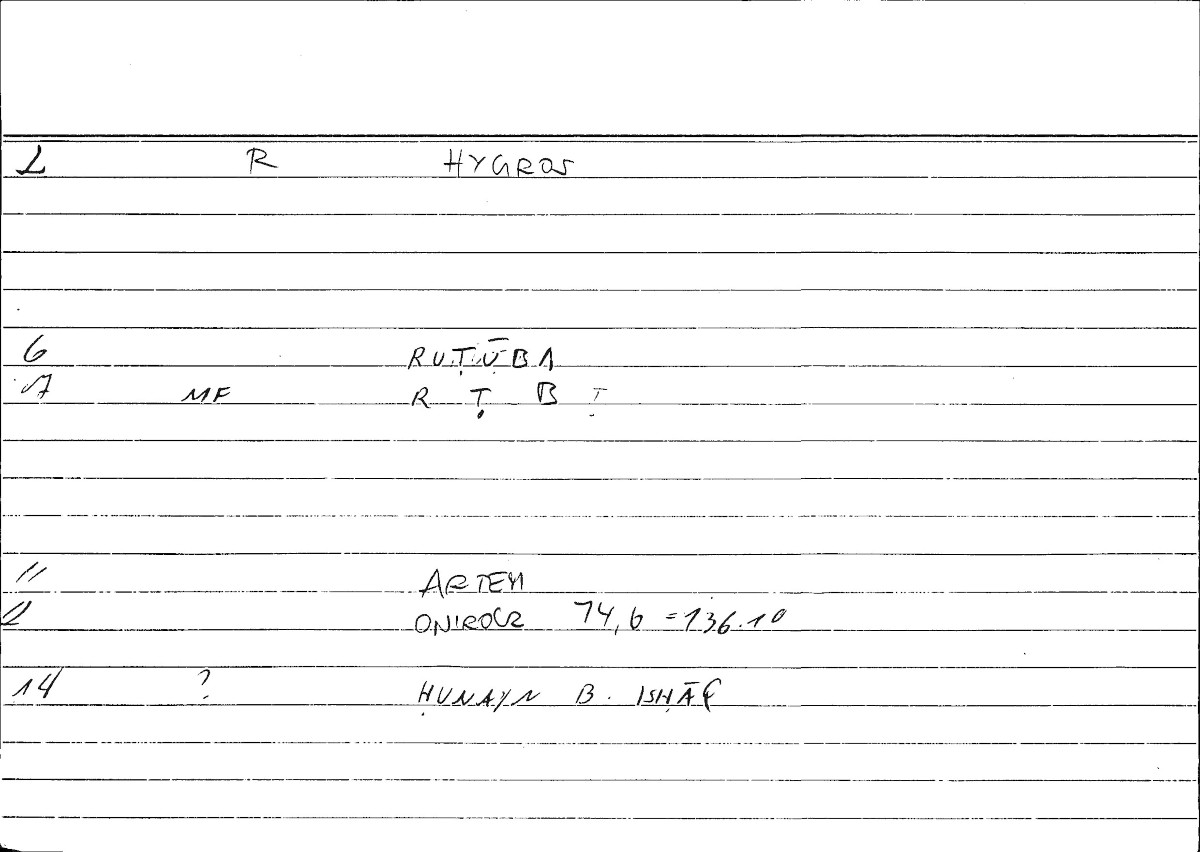 1 R HYGROS
6 RUṬŪBA
7 MF R Ṭ B Ṭ
11 ARTEM
12 ONIROCR 74,6 = 136.10
14 ? ḤUNAYN B. ISḤĀQ